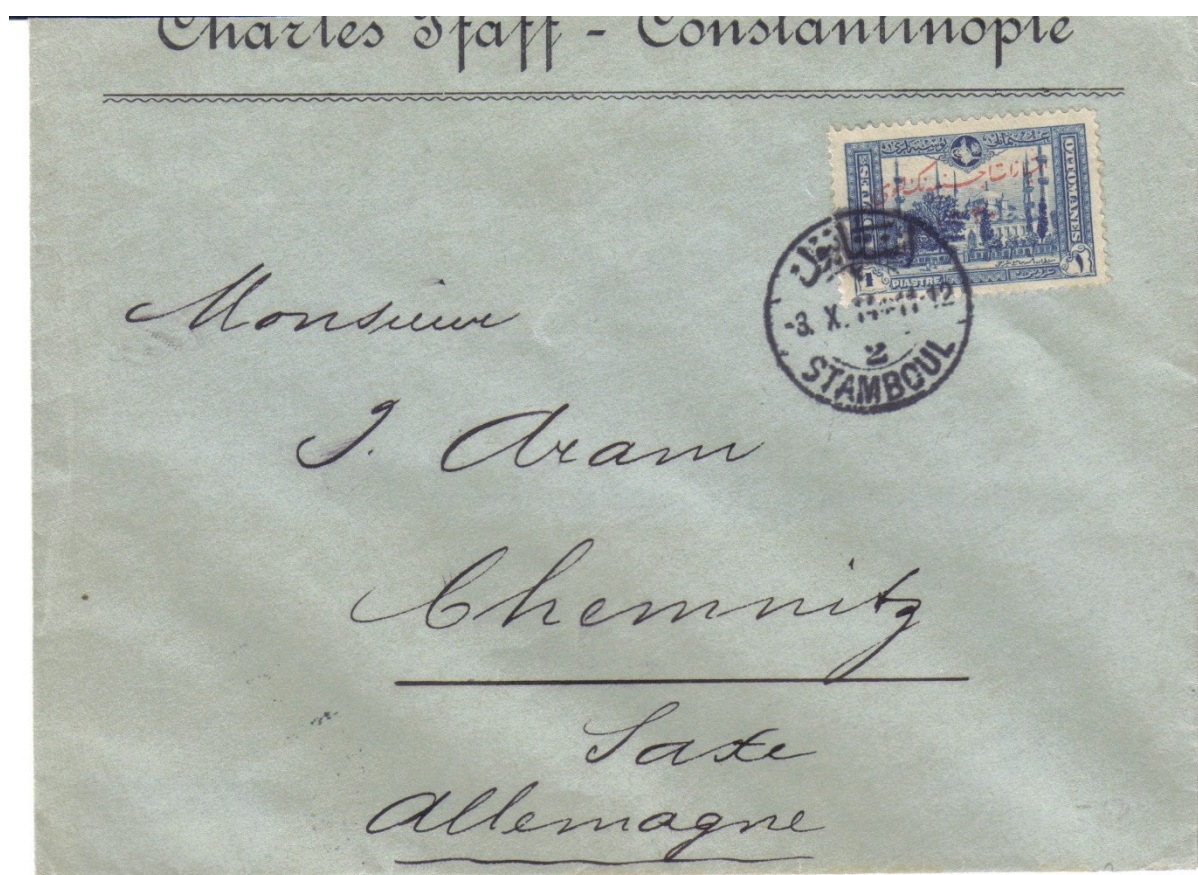 Charles Pfaff - Constantinople
POSTES OTTOMANES
1 PIASTRE ١
-3. X. 14 11-12
2
STAMBOUL
Monsieur
J. Aram
Chemnitz
Saxe
Allemagne